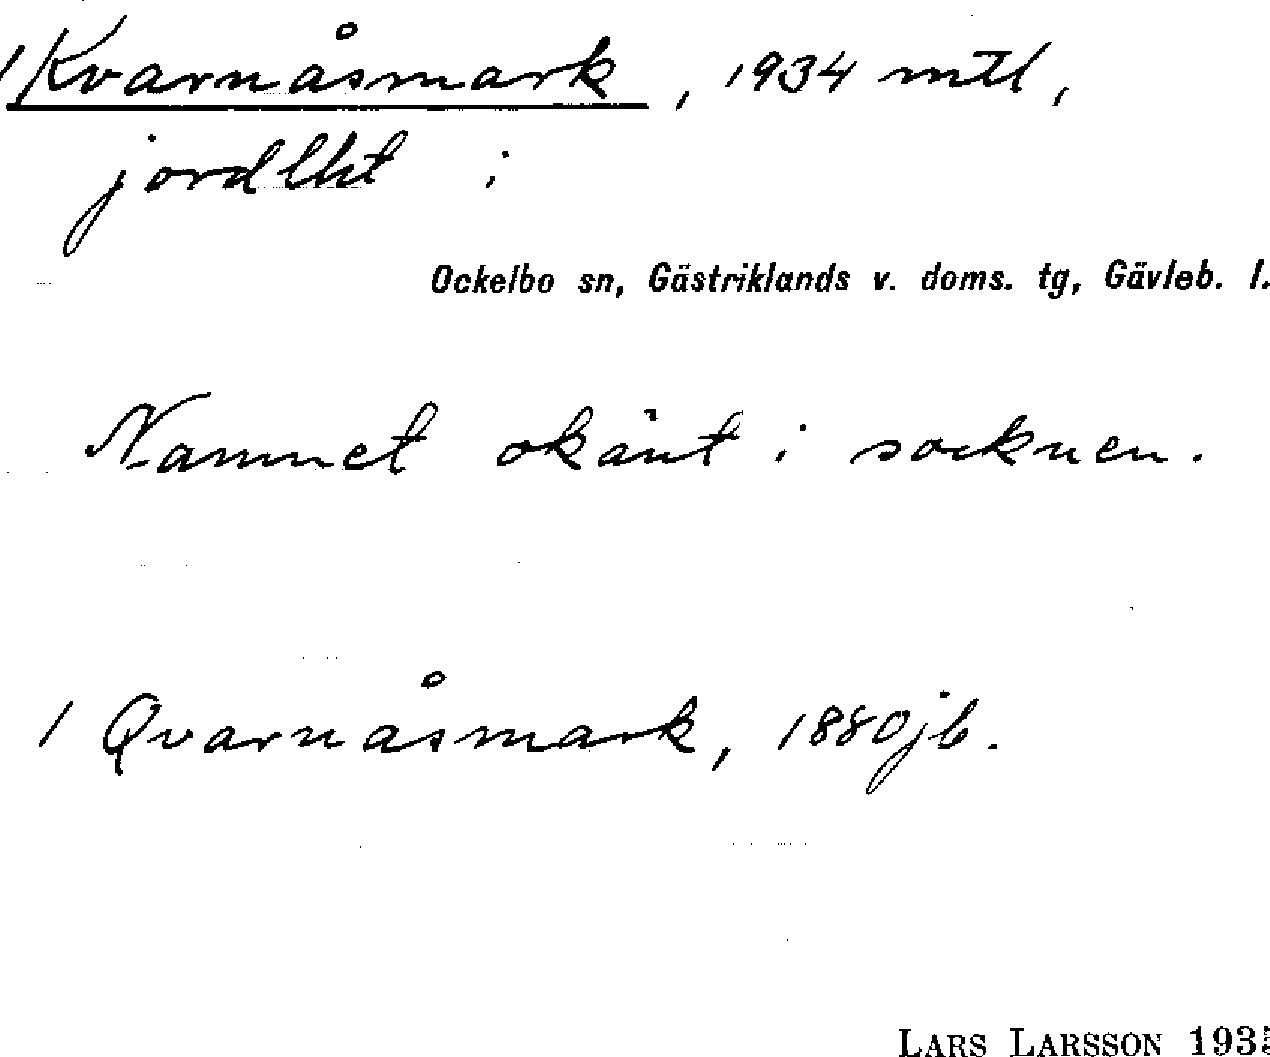 1 Kvarnåsmark, 1934 mtl,
jordlht i
Ockelbo sn, Gästriklands v. doms. tg, Gävleb. l.
Namnet okänt i socknen.
1 Qvarnåsmark, 1880 jb.
LARS LARSSON 1935